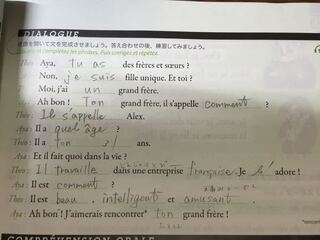 DIALOGUE
聴いて文を完成させましょう。答え合わせの後、練習してみましょう。
et complétez les phrases. Puis corrigez et répétez.
Théo : Aya, tu as des frères et sœurs ?
Non, je suis fille unique. Et toi ?
Moi, j'ai un grand frère.
Ah bon ! Ton grand frère, il s'appelle comment ?
Théo : Il s'appelle Alex.
Aya : Il a quel âge ?
Théo : Il a ton 31 ans.
Aya : Et il fait quoi dans la vie ?
Théo : Il travaille dans une entreprise française. Je l' adore !
Aya : Il est comment ?
Théo : Il est beau, intelligent et amusant.
Aya : Ah bon ! J'aimerais rencontrer* ton grand frère !
COMPRÉHENSION ORALE